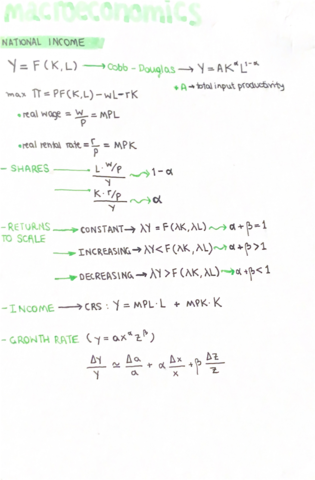 macroeconomics
NATIONAL INCOME
Y = F(K,L) → Cobb-Douglas → Y = AK^α L^1-α
• A → total input productivity
max Π = PF(K,L) - wL - rK
• real wage = w/p = MPL
• real rental rate = r/p = MPK
- SHARES → L · w/p / Y → 1-α
→ K · r/p / Y → α
- RETURNS TO SCALE → CONSTANT → λY = F(λK, λL) → α + β = 1
→ INCREASING → λY < F(λK, λL) → α + β > 1
→ DECREASING → λY > F(λK, λL) → α + β < 1
- INCOME → CRS : Y = MPL · L + MPK · K
- GROWTH RATE (y = ax^α z^β)
ΔY/Y ≃ Δa/a + α Δx/x + β Δz/z